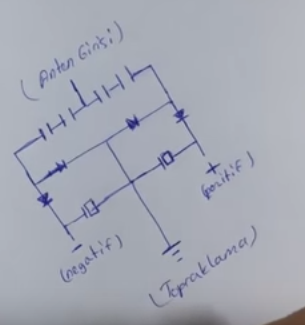 (Anten Girişi)
+
(pozitif)
-
(negatif)
(Topraklama)